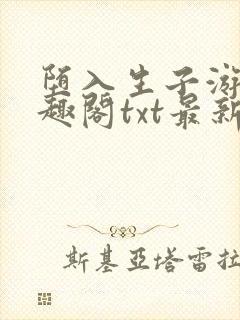 堕入生子游
趣阁txt最新
斯基亞塔雷拉